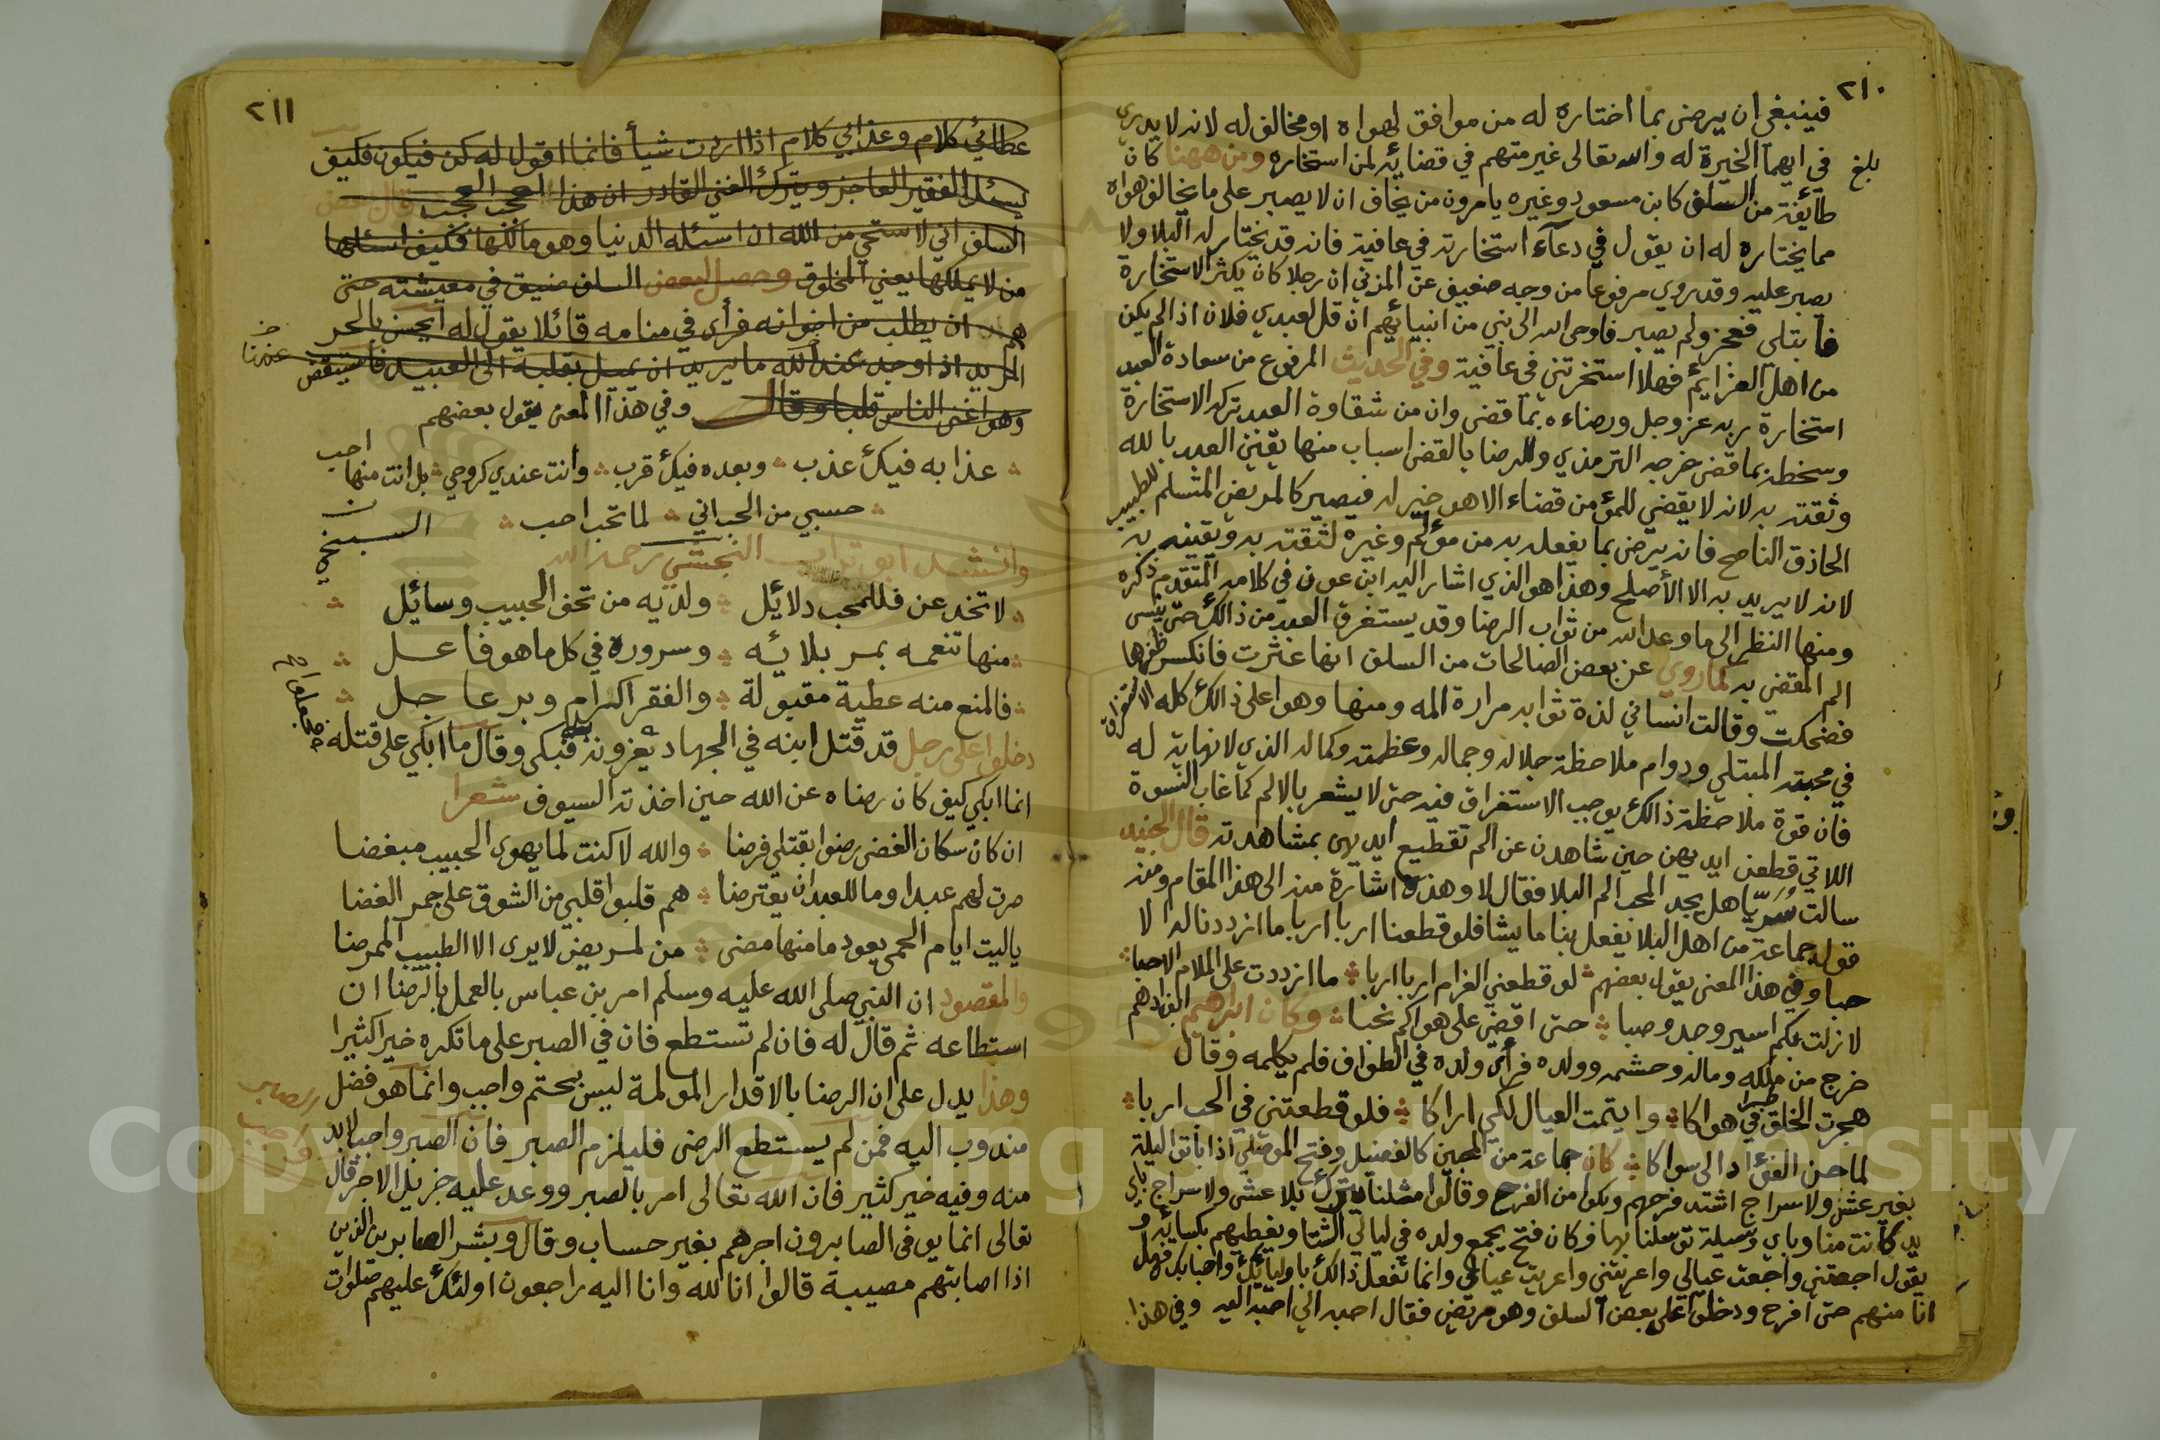 ٢١٠
فينبغي ان يرضى بما اختاره له من موافق لهواه او مخالف له لانه لا يدري
بلغ
في ايهما الخيرة له والله تعالى غير متهم في قضائه لمن استخاره ومن ههنا كان
طايفة من السلف كابن مسعود وغيره يامرون من يخاف ان لا يصبر على ما يخالف هواه
مما يختاره له ان يقول في دعآء استخارته في عافية فانه قد يختار له البلا ولا
يصبر عليه وقد روي مرفوعا من وجه ضعيف عن المزني ان رجلا كان يكثر الاستخارة
فابتلي فعجز ولم يصبر فاوحى الله الى نبي من انبيائهم ان قل لعبدي فلان اذا لم يكن
من اهل العزايم فهلا استخرتني في عافية وفي الحديث المرفوع من سعادة العبد
استخارة ربه عز وجل ورضاءه بما قضى وان من شقاوة العبد تركه الاستخارة
وسخطه بما قضى خرجه الترمذي وللرضا بالقضى اسباب منها يقين العبد بالله
وثقته به لانه لا يقضي للمؤمن قضاء الا هو خير له فيصير كالمريض المتسلم للطبيب
الحاذق الناصح فانه يرضى بما يفعله به من مؤلم وغيره لثقته به ويقينه به
لانه لا يريد به الا الأصلح وهذا هو الذي اشار اليه ابن عون في كلامه المتقدم ذكره
ومنها النظر الى ما وعد الله من ثواب الرضا وقد يستغرق العبد من ذالك حتى ينسى
الم المقضي به كما روي عن بعض الصالحات من السلف انها عثرت فانكسر ظفرها
فضحكت وقالت انساني لذة ثوابه مرارة المه ومنها وهو اعلى ذالك كله الاستغراق
في محبته المبتلي ودوام ملاحظة جلاله وجماله وعظمته وكماله الذي لا نهاية له
فان قوة ملاحظة ذالك يوجب الاستغراق فيه حتى لا يشعر بالالم كما غاب النسوة
اللاتي قطعن ايديهن حين شاهدن عن الم تقطيع ايديهن بمشاهدته قال الجنيد
سالت سريا هل يجد المحب الم البلا فقال لا وهذه اشارة منه الى هذا المقام ومنه
قوله جماعة من اهل البلا يفعل بنا ما يشا فلو قطعنا اربا اربا ما ازددنا له الا
حبا وفي هذا المعنى يقول بعضهم لو قطعني الغرام اربا اربا ما ازددت على الملام الا حبا
لا زلت بكم اسير وجد وصبا حتى اقضي على هواكم نحبا وكان ابراهيم ابن ادهم
خرج من ملكه وماله وحشمه وولده فرأى ولده في الطواف فلم يكلمه وقال
هجرت الخلق طرا في هواكا وايتمت العيال لكي اراكا فلو قطعتني في الحب اربا
لما حن الفؤاد الى سواكا كان جماعة من المحبين كالفضيل وفتح الموصلي اذا باتوا ليلة
بغير عشى ولا سراج اشتد فرحهم وبكوا من الفرح وقالوا مثلنا يترك بلا عشى ولا سراج باي
يد كانت منا وباي وسيلة توسلنا بها وكان فتح يجمع ولده في ليالي الشتا ويغطيهم بكسايه و
يقول اجعتني واجعت عيالي واعريتني واعريت عيالي وانما تفعل ذالك باوليائك واحبابك فهل
انا منهم حتى افرح ودخلوا على بعض السلف وهو مريض فقال احبه الي احبه اليه وفي هذا
٢١١
عطائي كلام وعذابي كلام اذا اردت شيأ فانما اقول له كن فيكون فكيف
يسئل الفقير العاجز ويترك الغني القادر ان هذا اعجب العجب قال بعض
السلف اني لاستحي من الله ان اسئله الدنيا وهو مالكها فكيف اسئلها
من لا يملكها يعني المخلوق وحصل لبعض السلف ضيق في معيشته حتى
هم ان يطلب من اخوانه فرأى في منامه قائلا يقول له ايحسن بالحر
المريد اذا وجد عند الله ما يريد ان يميل بقلبه الى العبيد فاستيقض
وهو اغنى الناس قلبا وقال وفي هذا المعنى يقول بعضهم
عذابه فيك عذب وبعده فيك قرب وأنت عندي كروحي بل انت منها احب
حسبي من الحب اني لما تحب احب
وانشد ابو تراب النخشبي رحمه الله
لا تخدعن فللمحب دلائل ولديه من تحف الحبيب وسائل
منها تنعمه بمر بلائه وسروره في كل ما هو فاعل
فالمنع منه عطية مقبولة والفقر اكرام وبر عاجل
دخلوا على رجل قد قتل ابنه في الجهاد يعزونه فبكى وقال ما ابكي على قتله
انما ابكي كيف كان رضاه عن الله حين اخذته السيوف شعرا
ان كان سكان الغضى رضوا بقتلي فرضا والله لا كنت لما يهوى الحبيب مبغضا
صرت لهم عبدا وما للعبد ان يعترضا هم قلبوا قلبي من الشوق على جمر الغضا
ياليت ايام الحمى يعود ما منها مضى من لمريض لا يرى الا الطبيب الممرضا
والمقصود ان النبي صلى الله عليه وسلم امر بن عباس بالعمل بالرضا ان
استطاعه ثم قال له فان لم تستطع فان في الصبر على ما تكره خيرا كثيرا
وهذا يدل على ان الرضا بالاقدار المولمة ليس بحتم واجب وانما هو فضل
مندوب اليه فمن لم يستطع الرضى فليلزم الصبر فان الصبر واجب لابد
منه وفيه خير كثير فان الله تعالى امر بالصبر ووعد عليه جزيل الاجر قال
تعالى انما يوفى الصابرون اجرهم بغير حساب وقال وبشر الصابرين الذين
اذا اصابتهم مصيبة قالوا انا لله وانا اليه راجعون اولئك عليهم صلوات
Copyright © King University